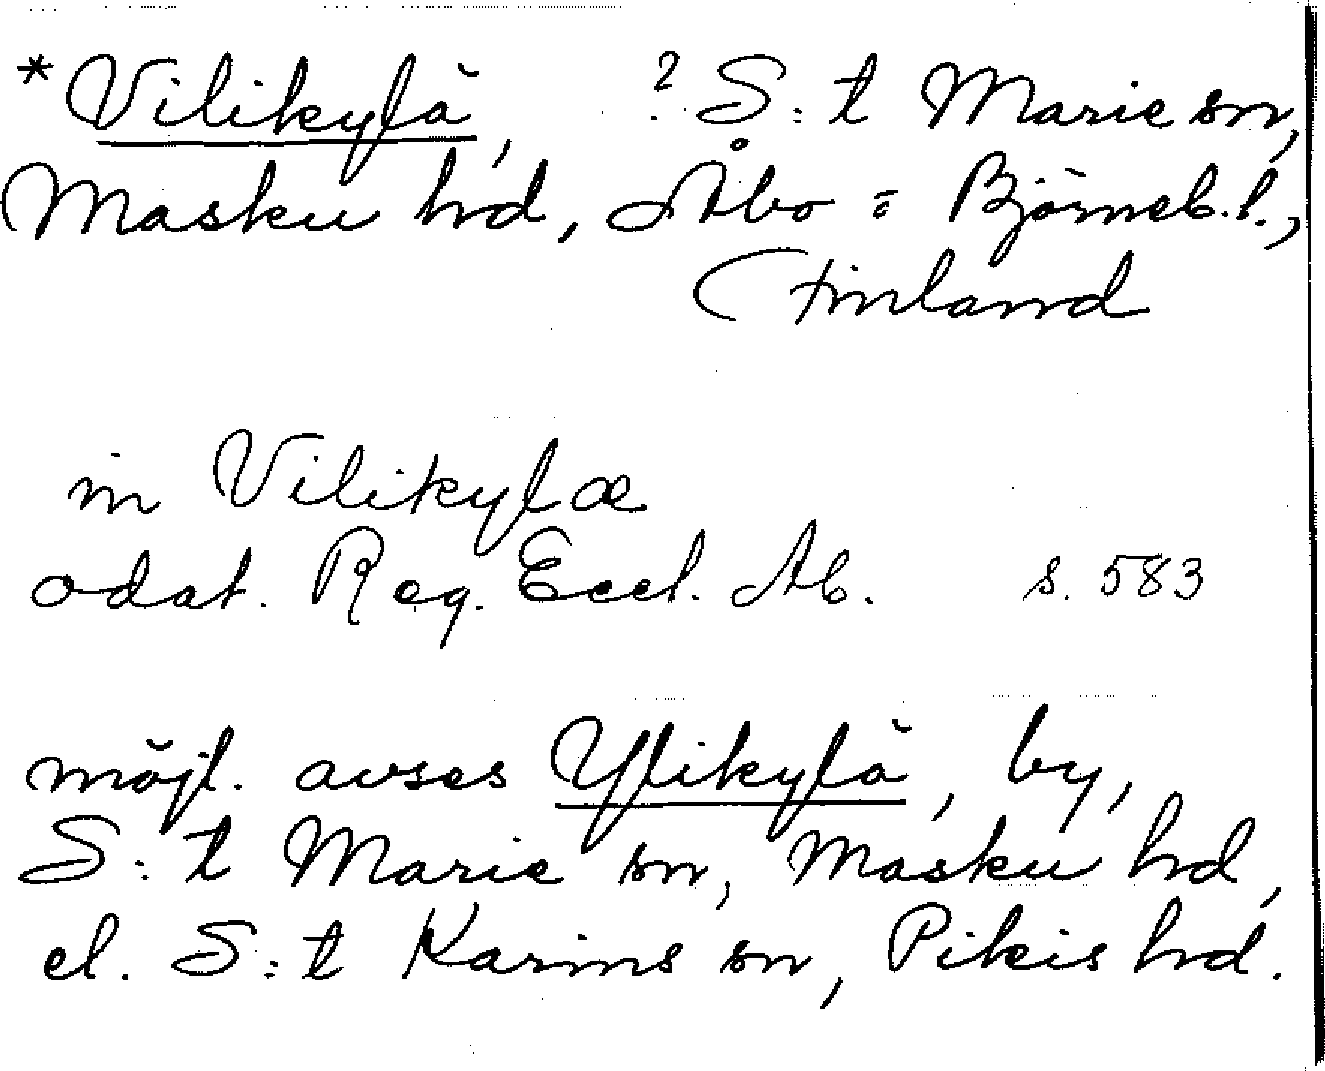 *Vilikylä, ? S:t Marie sn,
Masku hd, Åbo = Björneb. l.,
(Finland
in Vilikylæ
odat. Reg. Eccl. Ab. s. 583
möjl. avses Ylikylä, by,
S:t Marie sn, Masku hd,
el. S:t Karins sn, Pikis hd.